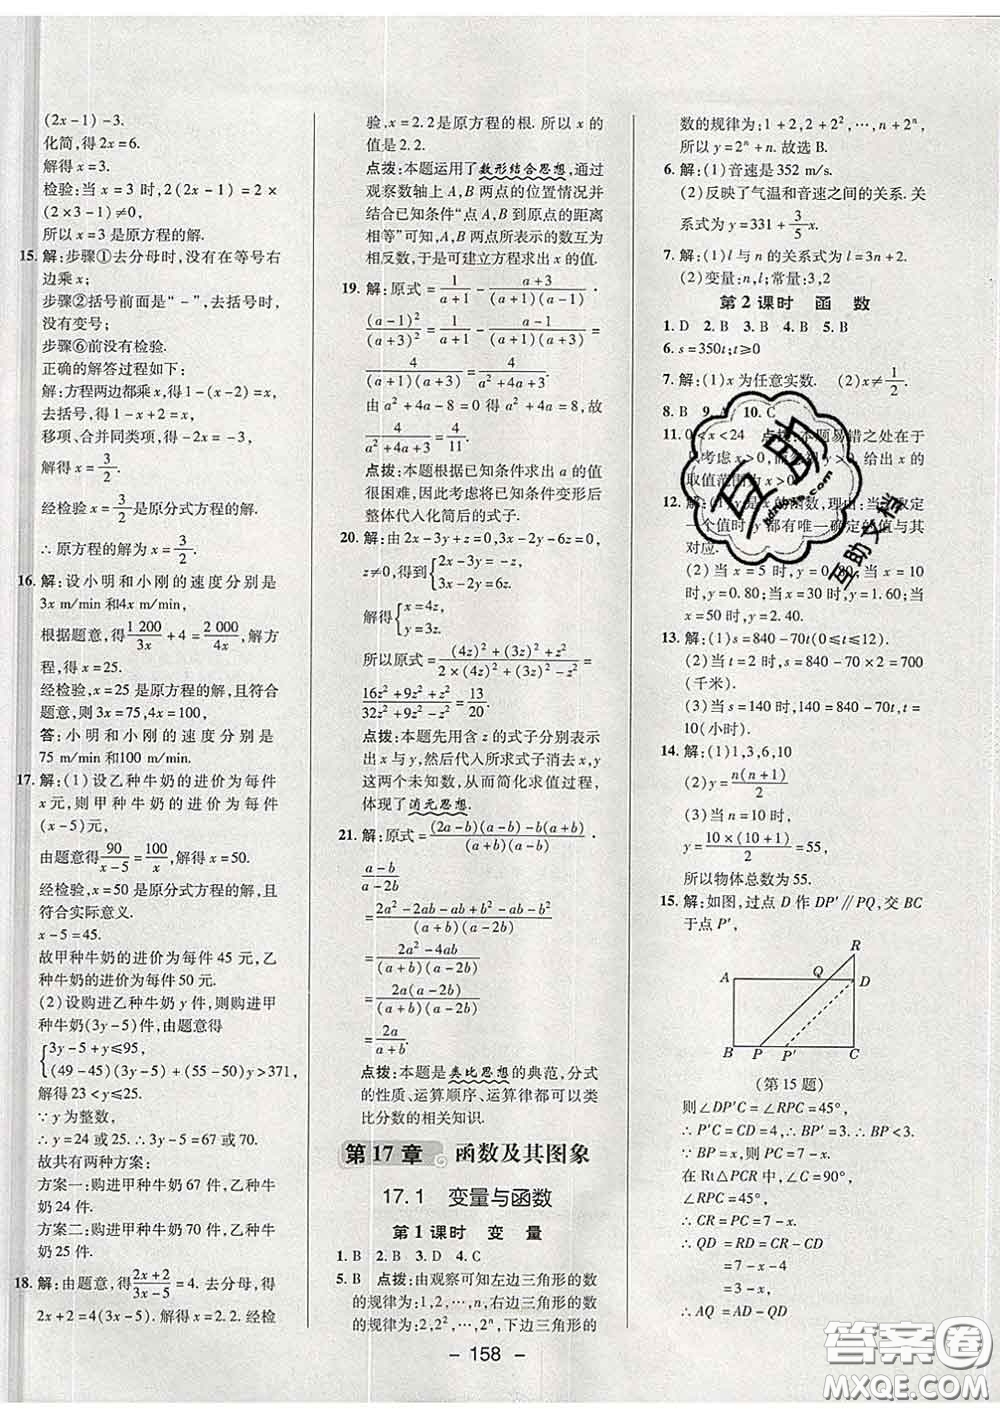 (2x-1)-3.
化简,得2x=6.
解得x=3.
检验:当x=3时,2(2x-1)=2×
(2×3-1)≠0,
所以x=3是原方程的解.
15. 解:步骤①去分母时,没有在等号右
边乘x;
步骤②括号前面是“-”,去括号时,
没有变号;
步骤⑥前没有检验.
正确的解答过程如下:
解:方程两边都乘x,得1-(x-2)=x,
去括号,得1-x+2=x,
移项、合并同类项,得-2x=-3,
解得x=3/2.
经检验,x=3/2是原分式方程的解,
∴原方程的解为x=3/2.
16. 解:设小明和小刚的速度分别是
3x m/min和4x m/min,
根据题意,得1 200/3x+4=2 000/4x,解方
程,得x=25.
经检验,x=25是原方程的解,且符合
题意,则3x=75,4x=100,
答:小明和小刚的速度分别是
75 m/min和100 m/min.
17. 解:(1)设乙种牛奶的进价为每件
x元,则甲种牛奶的进价为每件
(x-5)元,
由题意得90/(x-5)=100/x,解得x=50.
经检验,x=50是原分式方程的解,且
符合实际意义.
x-5=45.
故甲种牛奶的进价为每件45元,乙
种牛奶的进价为每件50元.
(2)设购进乙种牛奶y件,则购进甲
种牛奶(3y-5)件,由题意得
{3y-5+y≤95,
(49-45)(3y-5)+(55-50)y>371,
解得23<y≤25.
∵y为整数,
∴y=24或25.
故共有两种方案:
方案一:购进甲种牛奶67件,乙种牛
奶24件;
方案二:购进甲种牛奶70件,乙种牛
奶25件.
18. 解:由题意,得(2x+2)/(3x-5)=4.去分母,得
2x+2=4(3x-5).解得x=2.2.经检
验,x=2.2是原方程的根.所以x的
值是2.2.
点拨:本题运用了数形结合思想,通过
观察数轴上A,B两点的位置情况并
结合已知条件“点A,B到原点的距离
相等”可知,A,B两点所表示的数互为
相反数,于是可建立方程求出x的值.
19. 解:原式=1/(a+1)-(a+3)/((a+1)(a-1))·
(a-1)²/((a+1)(a+3))=1/(a+1)-(a-1)/(a+1)²=
4/((a+1)(a+3))=4/(a²+4a+3).
由a²+4a-8=0得a²+4a=8,故
4/(a²+4a+3)=4/11.
点拨:本题根据已知条件求出a的值
很困难,因此考虑将已知条件变形后
整体代入化简后的式子.
20. 解:由2x-3y+z=0,3x-2y-6z=0,
z≠0,得到{2x-3y=-z,
3x-2y=6z.
解得{x=4z,
y=3z.
所以原式=((4z)²+(3z)²+z²)/(2×(4z)²+(3z)²-z²)=
(16z²+9z²+z²)/(32z²+9z²-z²)=13/20.
点拨:本题先用含z的式子分别表示
出x,y,然后代入所求式子消去x,y
这两个未知数,从而简化求值过程,
体现了消元思想.
21. 解:原式=((2a-b)(a-b)-b(a+b))/((a+b)(a-b))·
(a-b)/(a-2b)
=(2a²-2ab-ab+b²-ab-b²)/((a+b)(a-2b))
=(2a²-4ab)/((a+b)(a-2b))
=2a(a-2b)/((a+b)(a-2b))
=2a/(a+b).
点拨:本题是类比思想的典范,分式
的性质、运算顺序、运算律都可以类
比分数的相关知识.
第17章 函数及其图象
17.1 变量与函数
第1课时 变 量
1. B 2. B 3. D 4. C
5. B 点拨:由观察可知左边三角形的数
的规律为:1,2,…,n,右边三角形的数
的规律为:2,2²,…,2ⁿ,下边三角形的
数的规律为:1+2,2+2²,…,n+2ⁿ,
所以y=2ⁿ+n.故选B.
6. 解:(1)音速是352 m/s.
(2)反映了气温和音速之间的关系.关
系式为y=331+3/5x.
7. 解:(1)l与n的关系式为l=3n+2.
(2)变量:n,l;常量:3,2
第2课时 函 数
1. D 2. B 3. B 4. B 5. B
6. s=350t;t≥0
7. 解:(1)x为任意实数. (2)x≠1/2.
8. B 9. 10. C
11. 0<x<24 点拨:本题易错之处在于
考虑x>0,而 y>0,给出x的
取值范围为x>0
12. 解:(1)y是x的函数,理由:当x取定
一个值时,y都有唯一确定的值与其
对应.
(2)当x=5时,y=0.80;当x=10时,
y=0.80;当x=30时,y=1.60;当
x=50时,y=2.40.
13. 解:(1)s=840-70t(0≤t≤12).
(2)当t=2时,s=840-70×2=700
(千米).
(3)当s=140时,140=840-70t,t=
10(小时).
14. 解:(1)1,3,6,10
(2)y=n(n+1)/2
(3)当n=10时,
y=10×(10+1)/2=55,
所以物体总数为55.
15. 解:如图,过点D作DP'∥PQ,交BC
于点P',
R
A Q D
B P P' C
(第15题)
则∠DP'C=∠RPC=45°,
∴P'C=CD=4,∠R=45°,
∵BP=x,∴PC=7-x,
在Rt△PCR中,
∵∠RPC=∠R=45°,
∴CR=PC=7-x,
∴QD=RD=CR-CD
=7-x-4
=3-x,
∴AQ=AD-QD
- 158 -
互助
互助文档
答案圈
MXQE.COM